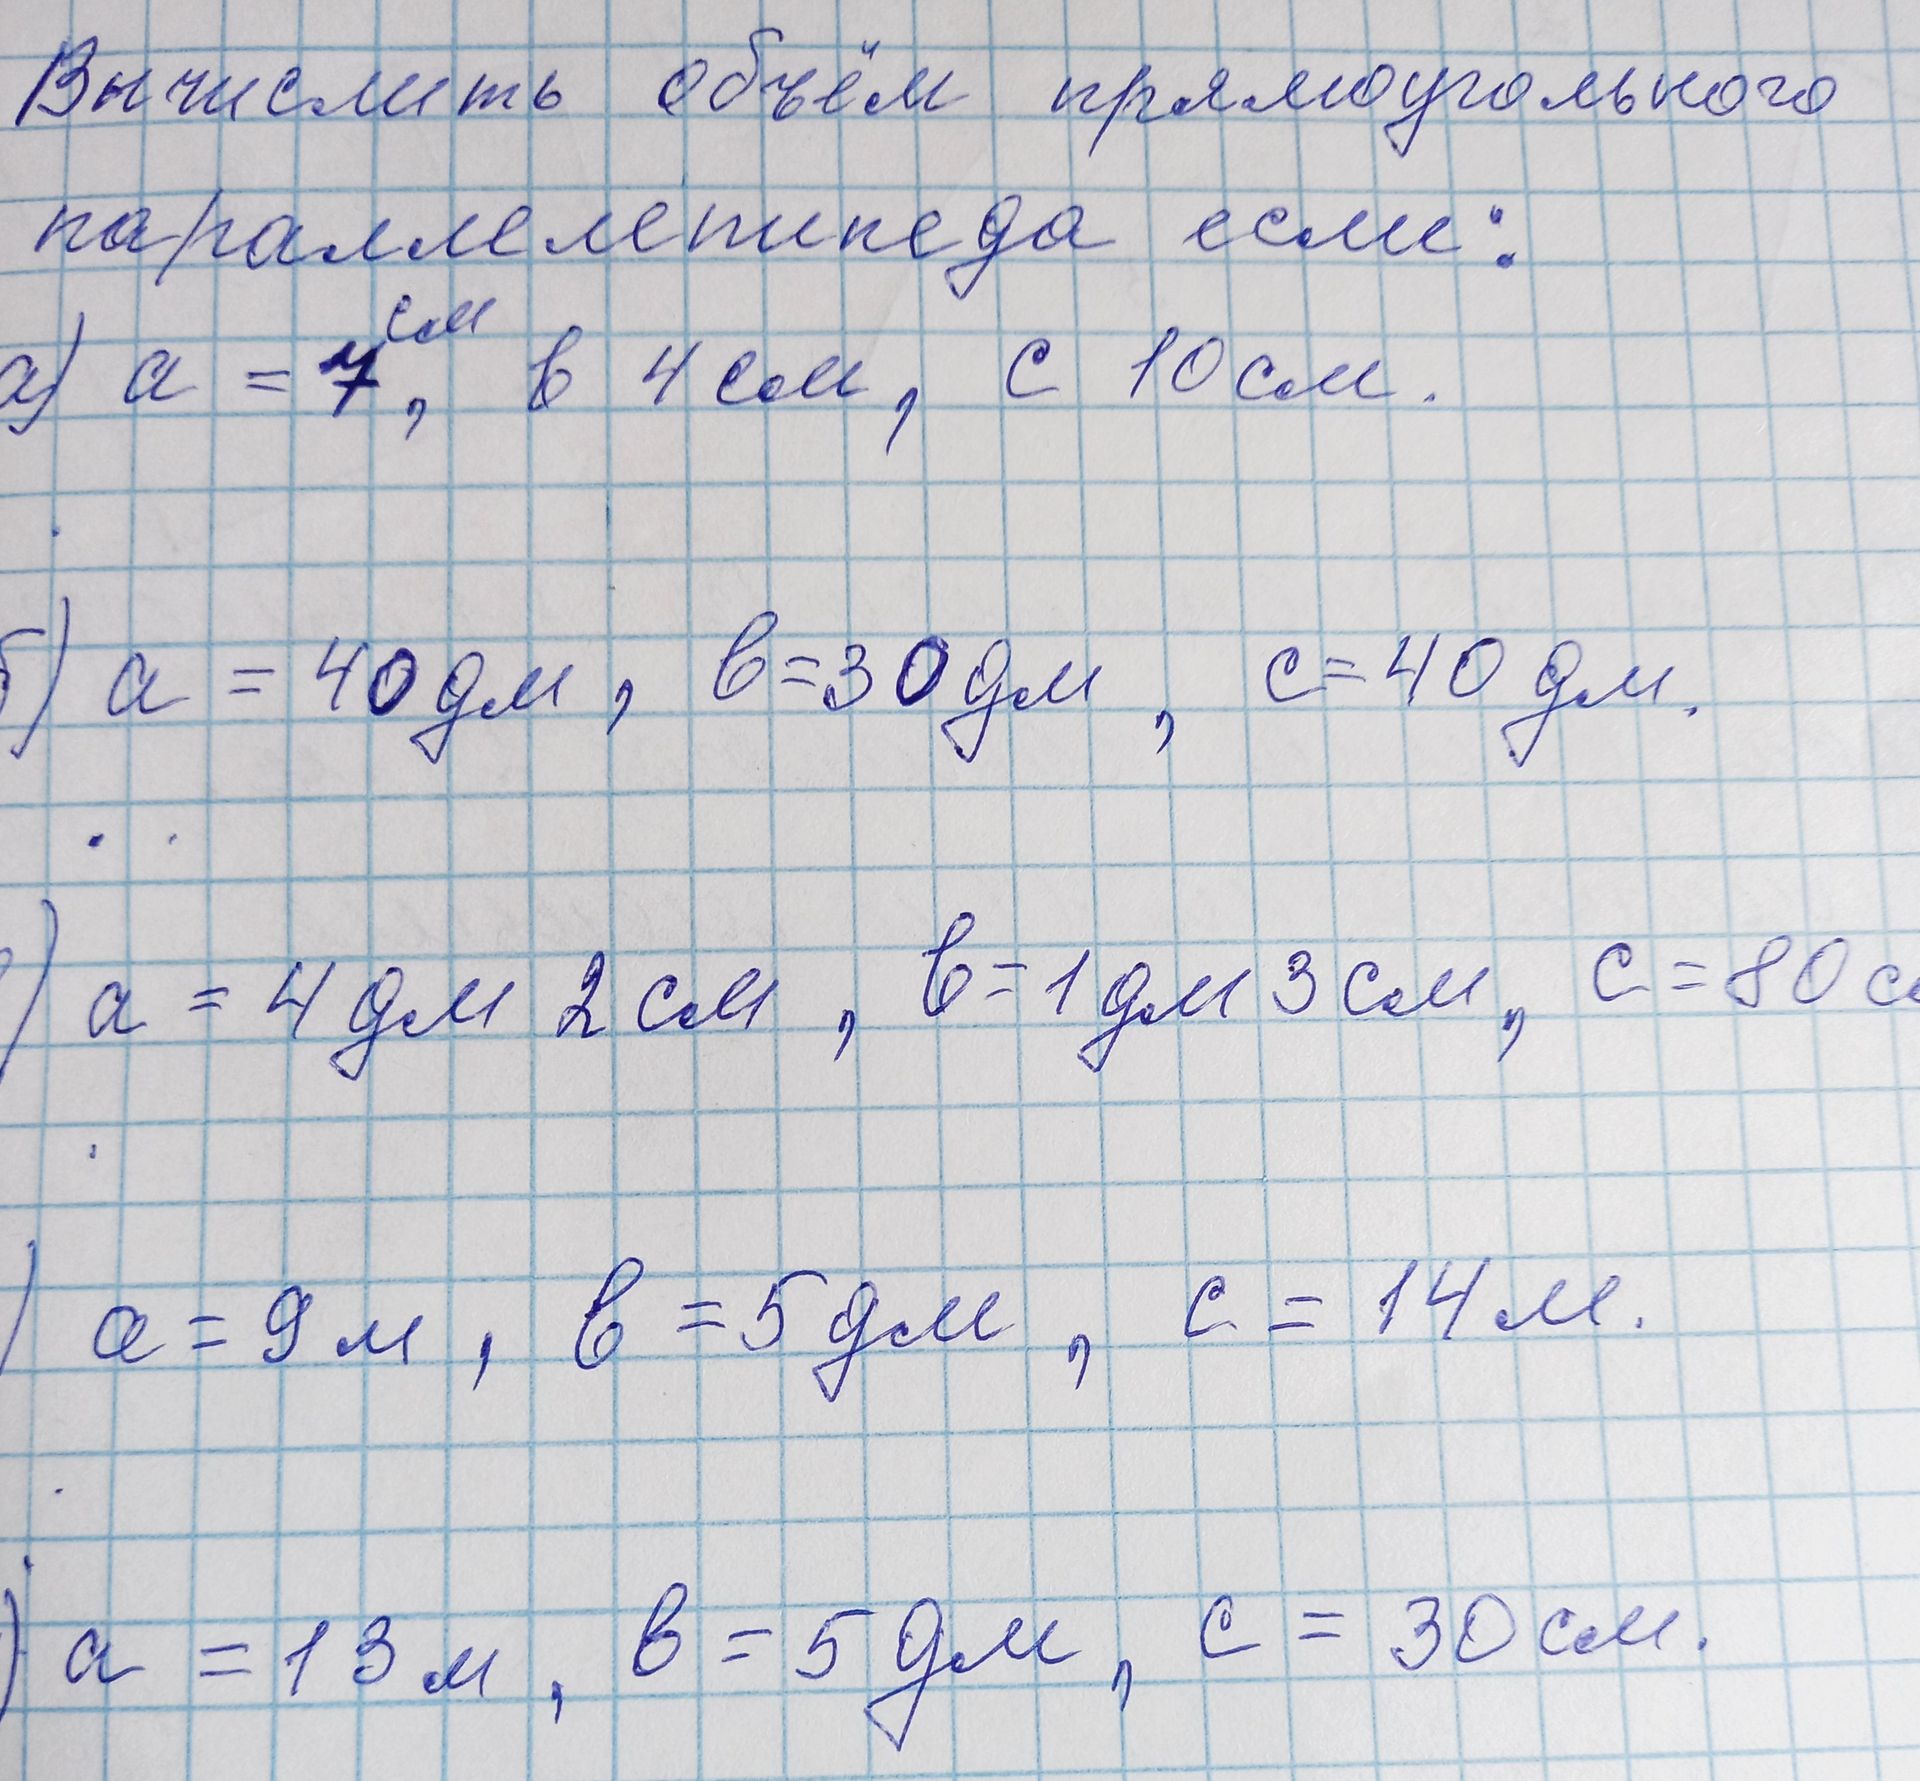 Вычислить объём прямоугольного
параллелепипеда если:
а) а = 7см, в 4 см, с 10 см.
б) а = 40 дм, в = 30 дм, с = 40 дм.
) а = 4 дм 2 см, в = 1 дм 3 см, с = 80 с
) а = 9 м, в = 5 дм, с = 14 м.
) а = 13 м, в = 5 дм, с = 30 см.